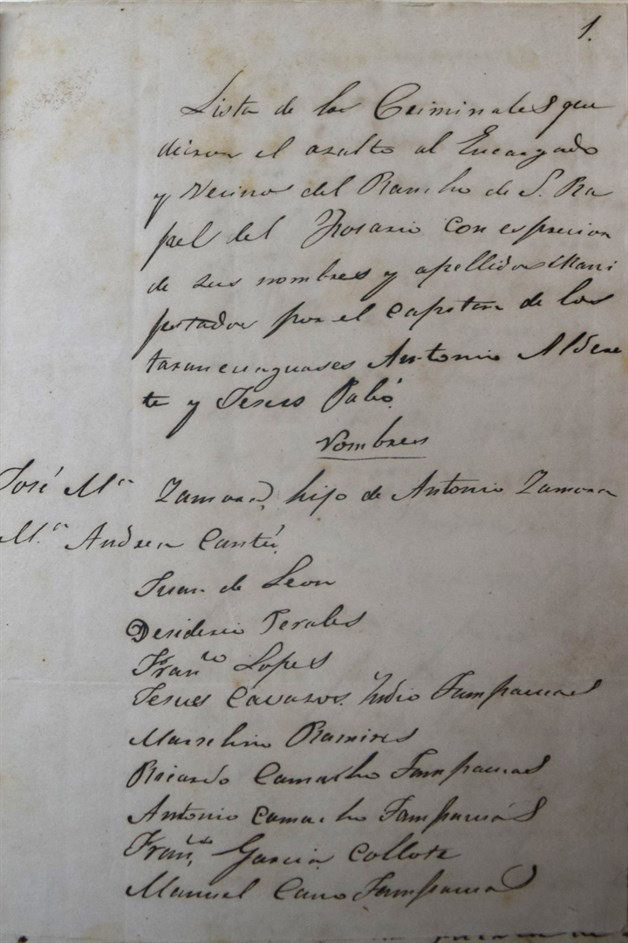 1.
Lista de los Criminales que
dieron el asalto al Encargado
y Vecinos del Rancho de S. Ra
fael del Rosario con esprecion
de sus nombres y apellidos Mani
festados por el capitan de los
Antonio Aldere
te y Jesus
Nombres
José Ma. Zamora, hijo de Antonio Zamora
Ma. Andrea Cantú,
Juan de Leon
Desiderio Perales
Franco. Lopes
Jesus Cavasos Indio Tampacuas
Marselino Ramires
Ricardo Camacho Tampacuas
Antonio Camacho Tampacuás
Franco. Garcia Collote
Manuel Cano Tampacuas